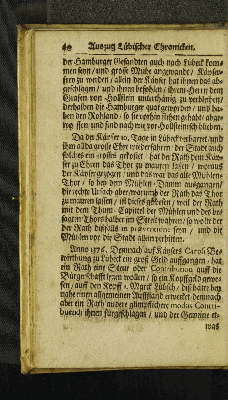 40 Auszug Lübischer Chronicken.
der Hamburger Gesandten auch nach Lübeck kom-
men seyn / und grosse Mühe angewandt / Käyser-
frey zu werden / allein der Käyser hat ihnen das ab-
geschlagen / und ihnen befohlen / ihrem Herrn dem
Grafen von Hollstein unterthänig zu verbleiben /
derhalben die Hamburger quaet geworden / und ha-
ben den Rohland / so sie vorhin stehen gehabt / abge-
worffen und sind nach wie vor Holsteinisch blieben.
Da der Käyser 10. Tage in Lübeck verharret / und
ihm alda grosse Ehr wiederfahren / der Stadt auch
solches ein grosses gekostet / hat der Rath dem Käy-
ser zu Ehren das Thor zu mauren lassen / woraus
der Käyser gezogen / und das war das alte Mühlen-
Thor / so bey dem Mühlen-Damm ausgangen /
die rechte Ursach aber warumb der Rath das Thor
zu mauren lassen / ist dieses gewesen / weil der Rath
mit dem Thum-Capittel der Mühlen und des be-
sagten Thors halber im Streit wahren / so wolte der
der Rath dißfalls in præventione seyn / und die
Mühlen vor die Stadt allein verbitten.
Anno 1376. Demnach auf Käysers Caroli Be-
wirthung zu Lübeck ein groß Geld auffgangen / hat
ein Rath eine Steur oder Contribution auff die
Bürgerschafft legen wollen / so ein Kopffgeld gewe-
sen / auff den Kopff 1. Marck Lübsch / diß hätte bey
nahe einen allgemeinen Auffstand erwecket / dennoch
aber ein Rath andere glimpffliche modos Contri-
buendi ihnen fürgeschlagen / und der Gemeine et-
was